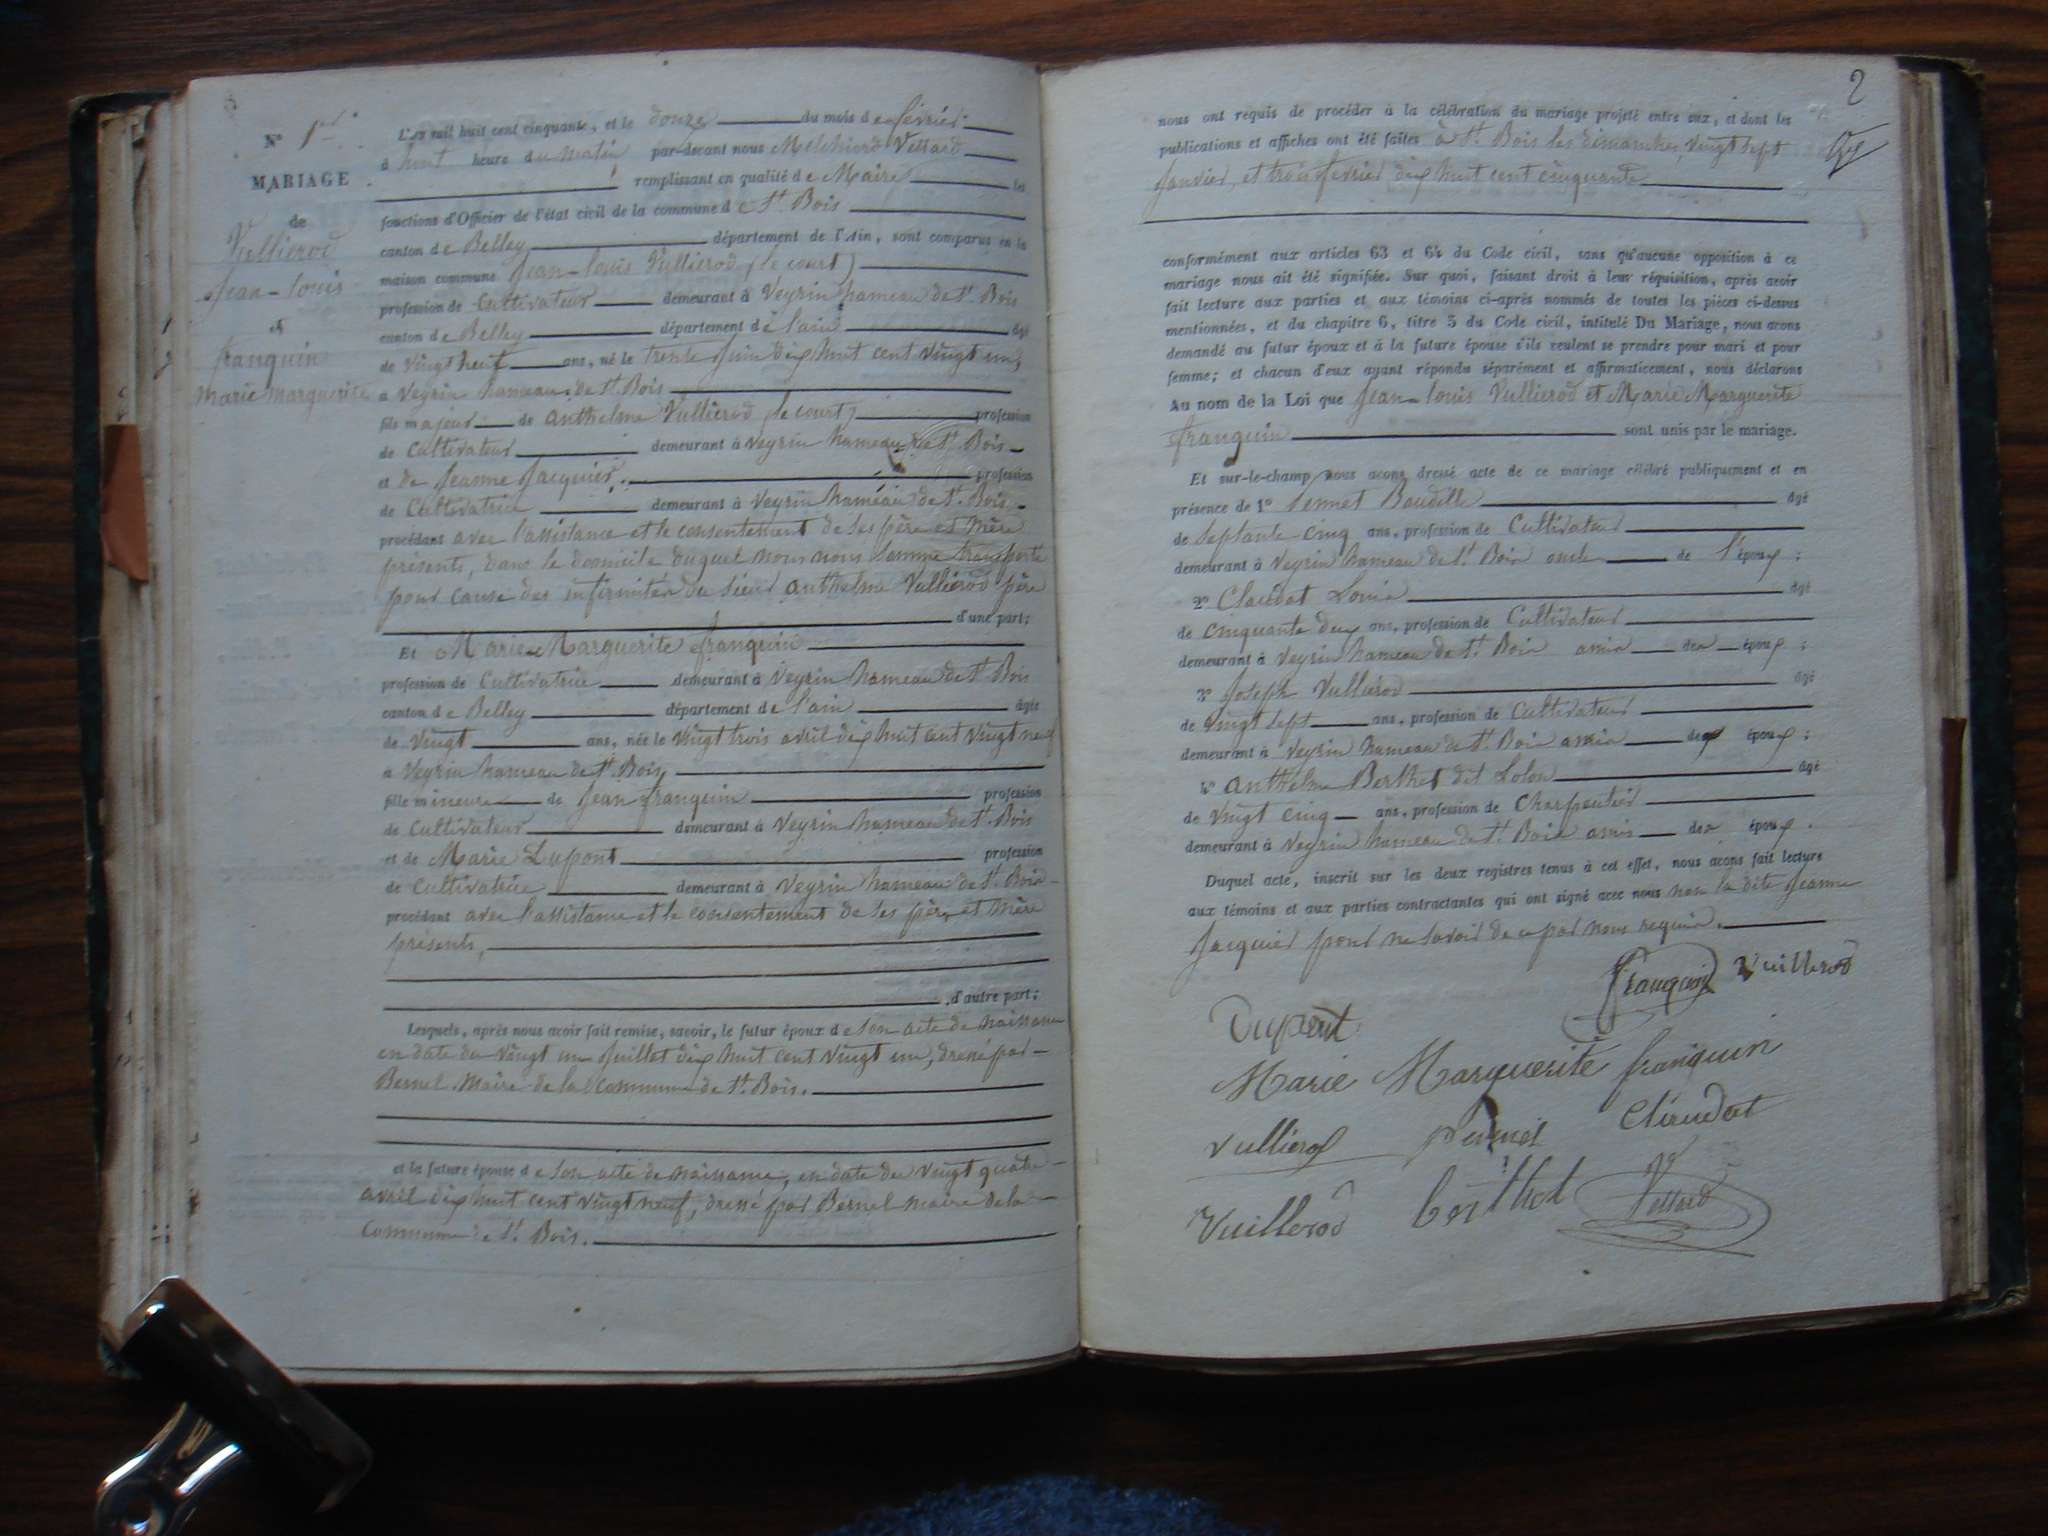 N° 1er
MARIAGE
de
Vullierod
Jean-louis
et
franquin
Marie marguerite
L'an mil huit cent cinquante, et le douze du mois de février
à huit heure du matin par-devant nous Melchiord Vettard
remplissant en qualité de Maire les
fonctions d'Officier de l'état civil de la commune de St. Bois
canton de Belley département de l'Ain, sont comparus en la
maison commune Jean-louis Vullierod (le court)
profession de Cultivateur demeurant à Veyrin hameau de St. Bois
canton de Belley département de l'ain âgé
de vingt huit ans, né le trente Juin dix huit cent vingt un,
à Veyrin hameau de St. Bois
fils majeur de anthelme Vullierod (le court) profession
de Cultivateur demeurant à Veyrin hameau de St. Bois
et de Jeanne Jacquier profession
de Cultivatrice demeurant à Veyrin hameau de St. Bois
procédant avec l'assistance et le consentement de ses père et mère
présents, dans le domicile duquel nous nous somme transporté
pour cause des infirmités du sieur anthelme Vullierod père
d'une part;
Et Marie Marguerite franquin
profession de Cultivatrice demeurant à Veyrin hameau de St Bois
canton de Belley département de l'ain âgée
de vingt ans, née le vingt trois avril dix huit cent vingt neuf
à Veyrin hameau de St. Bois
fille mineure de Jean franquin profession
de Cultivateur demeurant à Veyrin hameau de St. Bois
et de Marie Dupont profession
de Cultivatrice demeurant à Veyrin hameau de St. Bois
procédant avec l'assistance et le consentement de ses père et mère
présents,
d'autre part;
Lesquels, après nous avoir fait remise, savoir, le futur époux de son acte de naissance
en date du vingt un Juillet dix huit cent vingt un, dressé par
Bernel Maire de la commune de St. Bois.
et la future épouse de son acte de naissance, en date du vingt quatre
avril dix huit cent vingt neuf, dressé par Bernel maire de la
Commune de St. Bois.
2
nous ont requis de procéder à la célébration du mariage projeté entre eux, et dont les
publications et affiches ont été faites à St. Bois les dimanches vingt sept
Janvier, et trois fevrier dix huit cent cinquante
conformément aux articles 63 et 64 du Code civil, sans qu'aucune opposition à ce
mariage nous ait été signifiée. Sur quoi, faisant droit à leur réquisition, après avoir
fait lecture aux parties et aux témoins ci-après nommés de toutes les pièces ci-dessus
mentionnées, et du chapitre 6, titre 5 du Code civil, intitulé Du Mariage, nous avons
demandé au futur époux et à la future épouse s'ils veulent se prendre pour mari et pour
femme; et chacun d'eux ayant répondu séparément et affirmativement, nous déclarons
Au nom de la Loi que Jean-louis Vullierod et Marie Marguerite
franquin sont unis par le mariage.
Et sur-le-champ nous avons dressé acte de ce mariage célébré publiquement et en
présence de 1° Baudille âgé
de septante cinq ans, profession de Cultivateur
demeurant à Veyrin hameau de St. Bois oncle de l'époux;
2° Claudat Louis âgé
de cinquante deux ans, profession de Cultivateur
demeurant à Veyrin hameau de St. Bois amis des époux;
3° Joseph Vullierod âgé
de vingt sept ans, profession de Cultivateur
demeurant à Veyrin hameau de St. Bois amis des époux;
4° anthelme Berthet dit Lolon âgé
de vingt cinq ans, profession de Charpentier
demeurant à Veyrin hameau de St. Bois amis des époux.
Duquel acte, inscrit sur les deux registres tenus à cet effet, nous avons fait lecture
aux témoins et aux parties contractantes qui ont signé avec nous non la dite Jeanne
Jacquier pour ne savoir de ce par nous requis.
franquin Vuillerod
Dupont
Marie Marguerite franquin
Vullierod Claudat
Vuillerod berthet Vettard